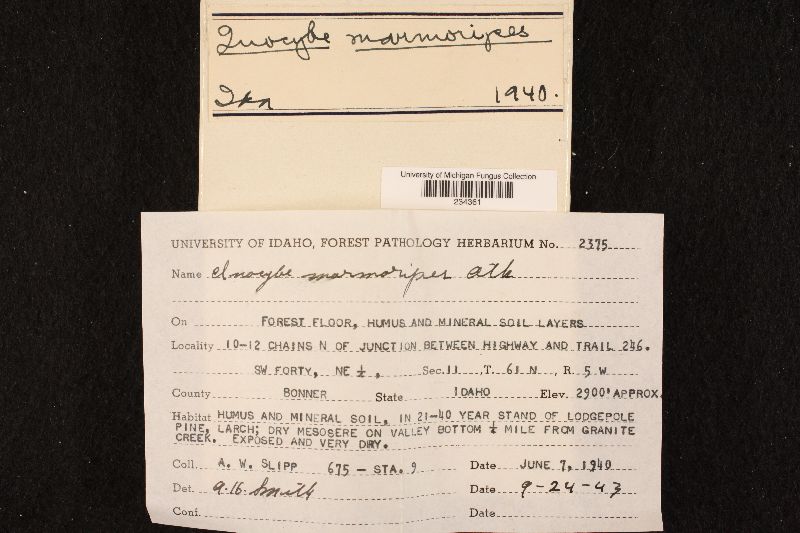 Inocybe marmoripes
Ida 1940.
University of Michigan Fungus Collection
234361
UNIVERSITY OF IDAHO, FOREST PATHOLOGY HERBARIUM No. 2375
Name Inocybe marmoripes Atk
On FOREST FLOOR, HUMUS AND MINERAL SOIL LAYERS
Locality 10-12 CHAINS N OF JUNCTION BETWEEN HIGHWAY AND TRAIL 246.
SW FORTY, NE ¼, Sec. 11, T. 61 N, R. 5 W
County BONNER State IDAHO Elev. 2900' APPROX.
Habitat HUMUS AND MINERAL SOIL, IN 21-40 YEAR STAND OF LODGEPOLE
PINE, LARCH; DRY MESOSERE ON VALLEY BOTTOM ¼ MILE FROM GRANITE
CREEK. EXPOSED AND VERY DRY.
Coll. A. W. SLIPP 675 - STA. 9 Date JUNE 7, 1940
Det. A.H. Smith Date 9-24-43
Conf. Date